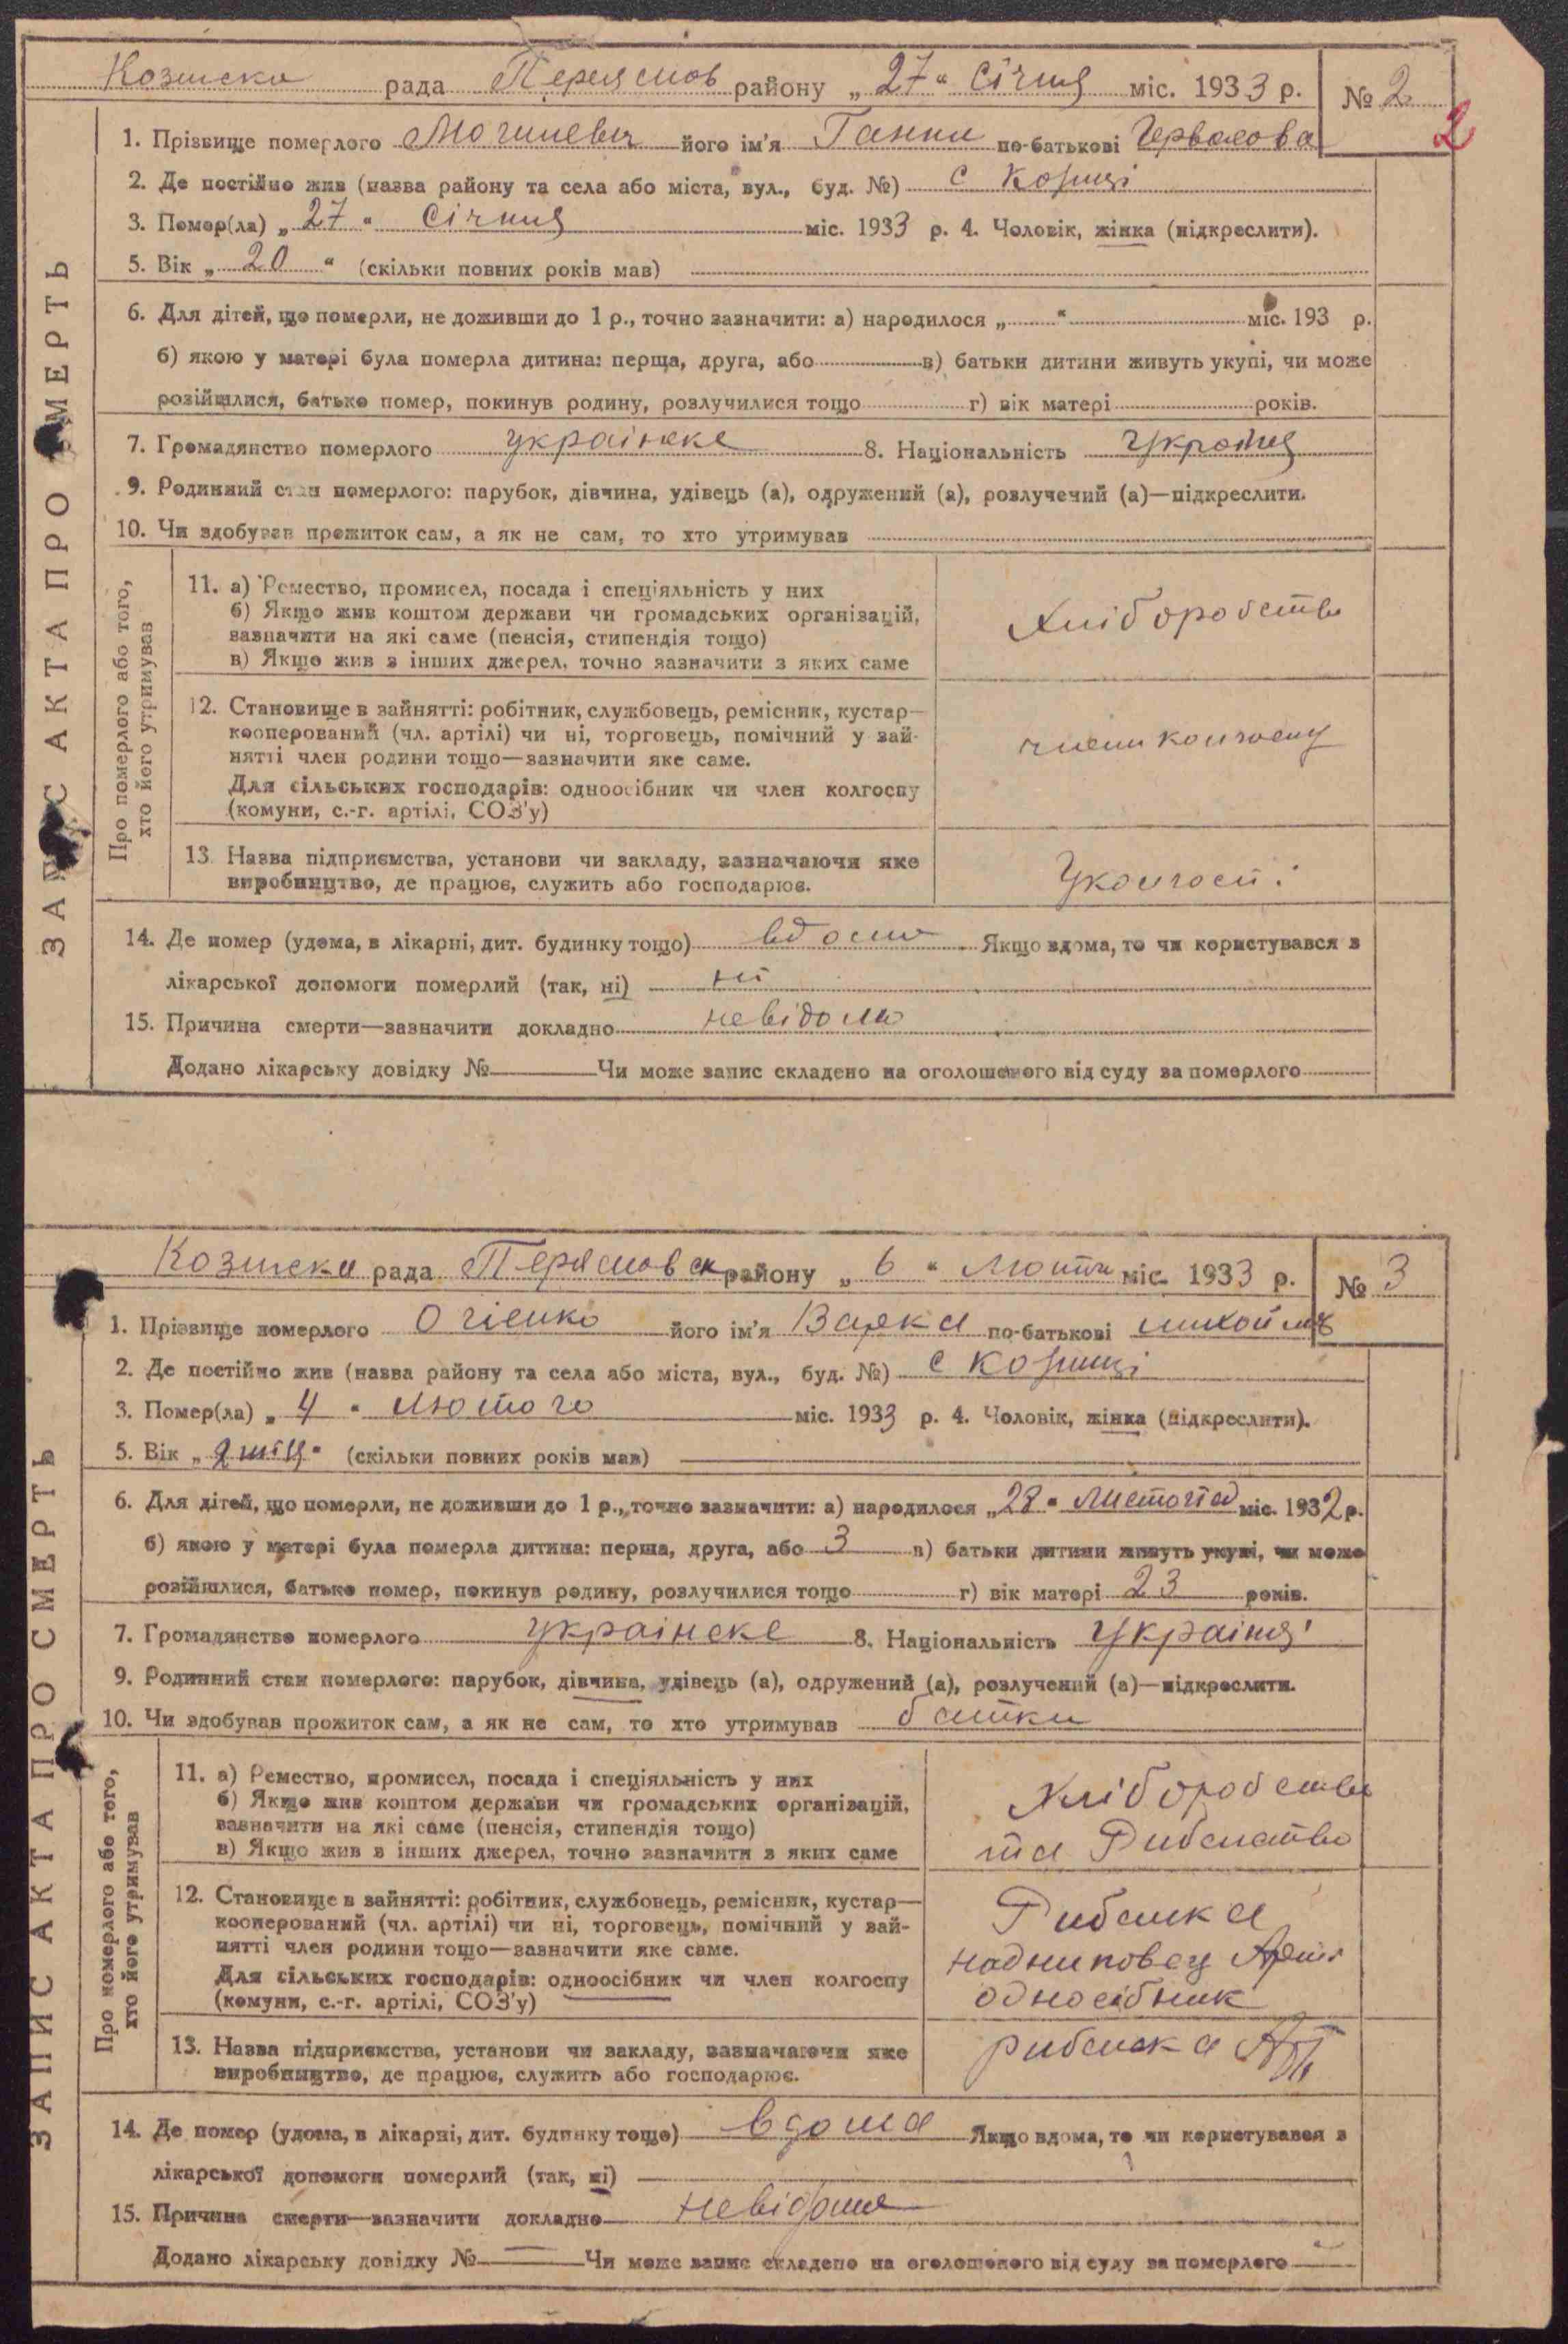 Козинска рада Переяслов району „ 27 “ Січня міс. 1933 р. № 2
2
1. Прізвище померлого Могилевич його ім'я Ганни по-батькові
2. Де постійно жив (назва району та села або міста, вул., буд. №) с
3. Помер(ла) „ 27 “ Січня міс. 1933 р. 4. Чоловік, жінка (підкреслити).
5. Вік „ 20 “ (скільки повних років мав)
6. Для дітей, що померли, не доживши до 1 р., точно зазначити: а) народилося „ “ міс. 193 р.
б) якою у матері була померла дитина: перша, друга, або в) батьки дитини живуть укупі, чи може
розійшлися, батько помер, покинув родину, розлучилися тощо г) вік матері років.
7. Громадянство померлого українске 8. Національність
9. Родинний стан померлого: парубок, дівчина, удівець (а), одружений (а), розлучений (а)—підкреслити.
10. Чи здобував прожиток сам, а як не сам, то хто утримував
ЗАПИС АКТА ПРО СМЕРТЬ
Про померлого або того,
хто його утримував
11. а) Ремество, промисел, посада і спеціяльність у них
б) Якщо жив коштом держави чи громадських організацій,
зазначити на які саме (пенсія, стипендія тощо)
в) Якщо жив з інших джерел, точно зазначити з яких саме
Хліборобство
12. Становище в зайнятті: робітник, службовець, ремісник, кустар—
кооперований (чл. артілі) чи ні, торговець, помічний у зай-
нятті член родини тощо—зазначити яке саме.
Для сільських господарів: одноосібник чи член колгоспу
(комуни, с.-г. артілі, СОЗ'у)
член колгоспу
13. Назва підприємства, установи чи закладу, зазначаючи яке
виробництво, де працює, служить або господарює.
Уколгоспі
14. Де помер (удома, в лікарні, дит. будинку тощо) вдома Якщо вдома, то чи користувався з
лікарської допомоги померлий (так, ні) ні
15. Причина смерти—зазначити докладно невідома
Додано лікарську довідку № Чи може запис складено на оголошеного від суду за померлого
Козинска рада Переясловск району „ 6 “ Лютого міс. 1933 р. № 3
1. Прізвище померлого Огієнко його ім'я Варка по-батькові
2. Де постійно жив (назва району та села або міста, вул., буд. №) с
3. Помер(ла) „ 4 “ Лютого міс. 1933 р. 4. Чоловік, жінка (підкреслити).
5. Вік „ 2 міц “ (скільки повних років мав)
6. Для дітей, що померли, не доживши до 1 р., точно зазначити: а) народилося „ 28 “ Листопад міс. 1932 р.
б) якою у матері була померла дитина: перша, друга, або 3 в) батьки дитини живуть укупі, чи може
розійшлися, батько помер, покинув родину, розлучилися тощо г) вік матері 23 років.
7. Громадянство померлого українске 8. Національність
9. Родинний стан померлого: парубок, дівчина, удівець (а), одружений (а), розлучений (а)—підкреслити.
10. Чи здобував прожиток сам, а як не сам, то хто утримував батки
ЗАПИС АКТА ПРО СМЕРТЬ
Про померлого або того,
хто його утримував
11. а) Ремество, промисел, посада і спеціяльність у них
б) Якщо жив коштом держави чи громадських організацій,
зазначити на які саме (пенсія, стипендія тощо)
в) Якщо жив з інших джерел, точно зазначити з яких саме
Хліборобство
та Рибалство
12. Становище в зайнятті: робітник, службовець, ремісник, кустар—
кооперований (чл. артілі) чи ні, торговець, помічний у зай-
нятті член родини тощо—зазначити яке саме.
Для сільських господарів: одноосібник чи член колгоспу
(комуни, с.-г. артілі, СОЗ'у)
Рибалка
односібник
13. Назва підприємства, установи чи закладу, зазначаючи яке
виробництво, де працює, служить або господарює.
рибалска
14. Де помер (удома, в лікарні, дит. будинку тощо) вдома Якщо вдома, то чи користувався з
лікарської допомоги померлий (так, ні)
15. Причина смерти—зазначити докладно невідома
Додано лікарську довідку № — Чи може запис складено на оголошеного від суду за померлого —